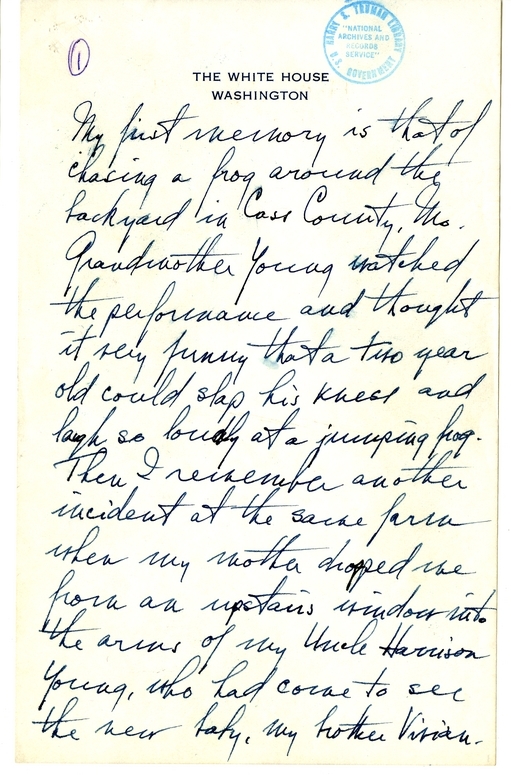 1
HARRY S. TRUMAN LIBRARY
"NATIONAL
ARCHIVES AND
RECORDS
SERVICE"
U.S. GOVERNMENT
THE WHITE HOUSE
WASHINGTON
My first memory is that of
chasing a frog around the
backyard in Cass County, Mo.
Grandmother Young watched
the performance and thought
it very funny that a two year
old could slap his knees and
laugh so loudly at a jumping frog.
Then I remember another
incident at the same farm
when my mother dropped me
from an upstairs window into
the arms of my Uncle Harrison
Young, who had come to see
the new baby, my brother Vivian.